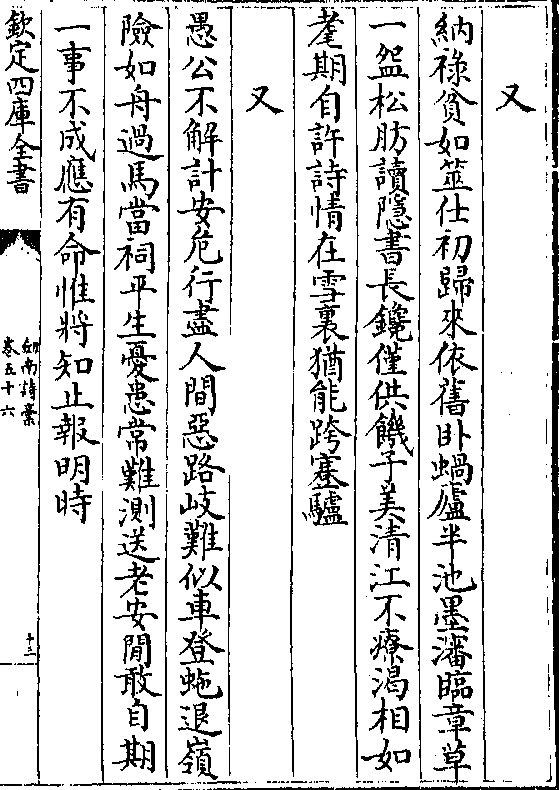 又
納祿貧如筮仕初歸來依舊卧蝸廬半池墨瀋臨章草
一盌松肪讀隱書長鑱僅供饑子美清江不療渴相如
耄期自許詩情在雪裏猶能跨蹇驢
又
愚公不解計安危行盡人間惡路岐難似車登虵退嶺
險如舟過馬當祠平生憂患常難測送老安閒敢自期
一事不成應有命惟將知止報明時
欽定四庫全書
劒南詩槀
卷五十六
十三